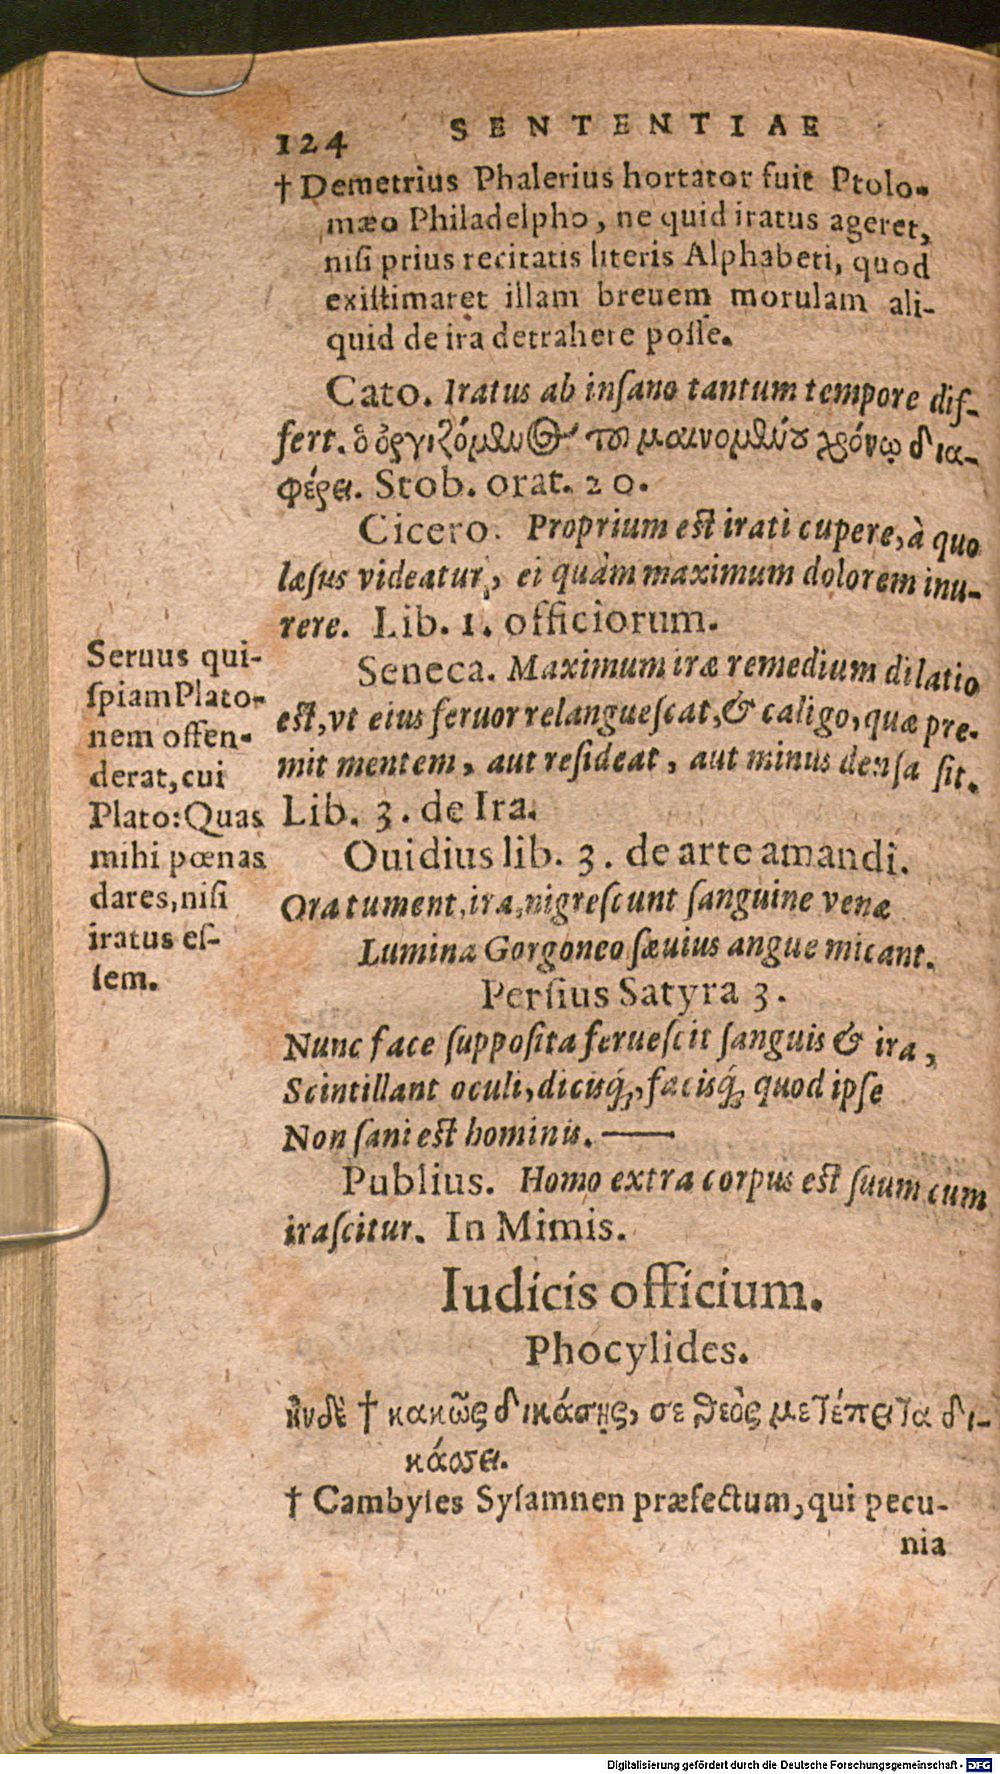 124 SENTENTIAE
† Demetrius Phalerius hortator fuit Ptolo-
mæo Philadelpho, ne quid iratus ageret,
nisi prius recitatis literis Alphabeti, quod
existimaret illam breuem morulam ali-
quid de ira detrahere posse.
Cato. Iratus ab insano tantum tempore dif-
fert. ὁ ὀργιζόμενος τοῦ μαινομένου χρόνῳ δια-
φέρει. Stob. orat. 20.
Cicero. Proprium est irati cupere, à quo
læsus videatur, ei quàm maximum dolorem inu-
rere. Lib. 1. officiorum.
Seneca. Maximum iræ remedium dilatio
est, vt eius feruor relanguescat, & caligo, quæ pre-
mit mentem, aut resideat, aut minus densa sit.
Lib. 3. de Ira.
Ouidius lib. 3. de arte amandi.
Ora tument, ira, nigrescunt sanguine venæ
Lumina Gorgoneo sæuius angue micant.
Persius Satyra 3.
Nunc face supposita feruescit sanguis & ira,
Scintillant oculi, dicisq́;, facisq́; quod ipse
Non sani est hominis. —
Publius. Homo extra corpus est suum cum
irascitur. In Mimis.
Seruus qui-
spiam Plato-
nem offen-
derat, cui
Plato: Quas
mihi pœnas
dares, nisi
iratus es-
sem.
Iudicis officium.
Phocylides.
ἢν δὲ † κακῶς δικάσῃς, σε θεὸς μετέπειτα δι-
κάσσει.
† Cambyses Sysamnen præfectum, qui pecu-
nia
Digitalisierung gefördert durch die Deutsche Forschungsgemeinschaft - DFG